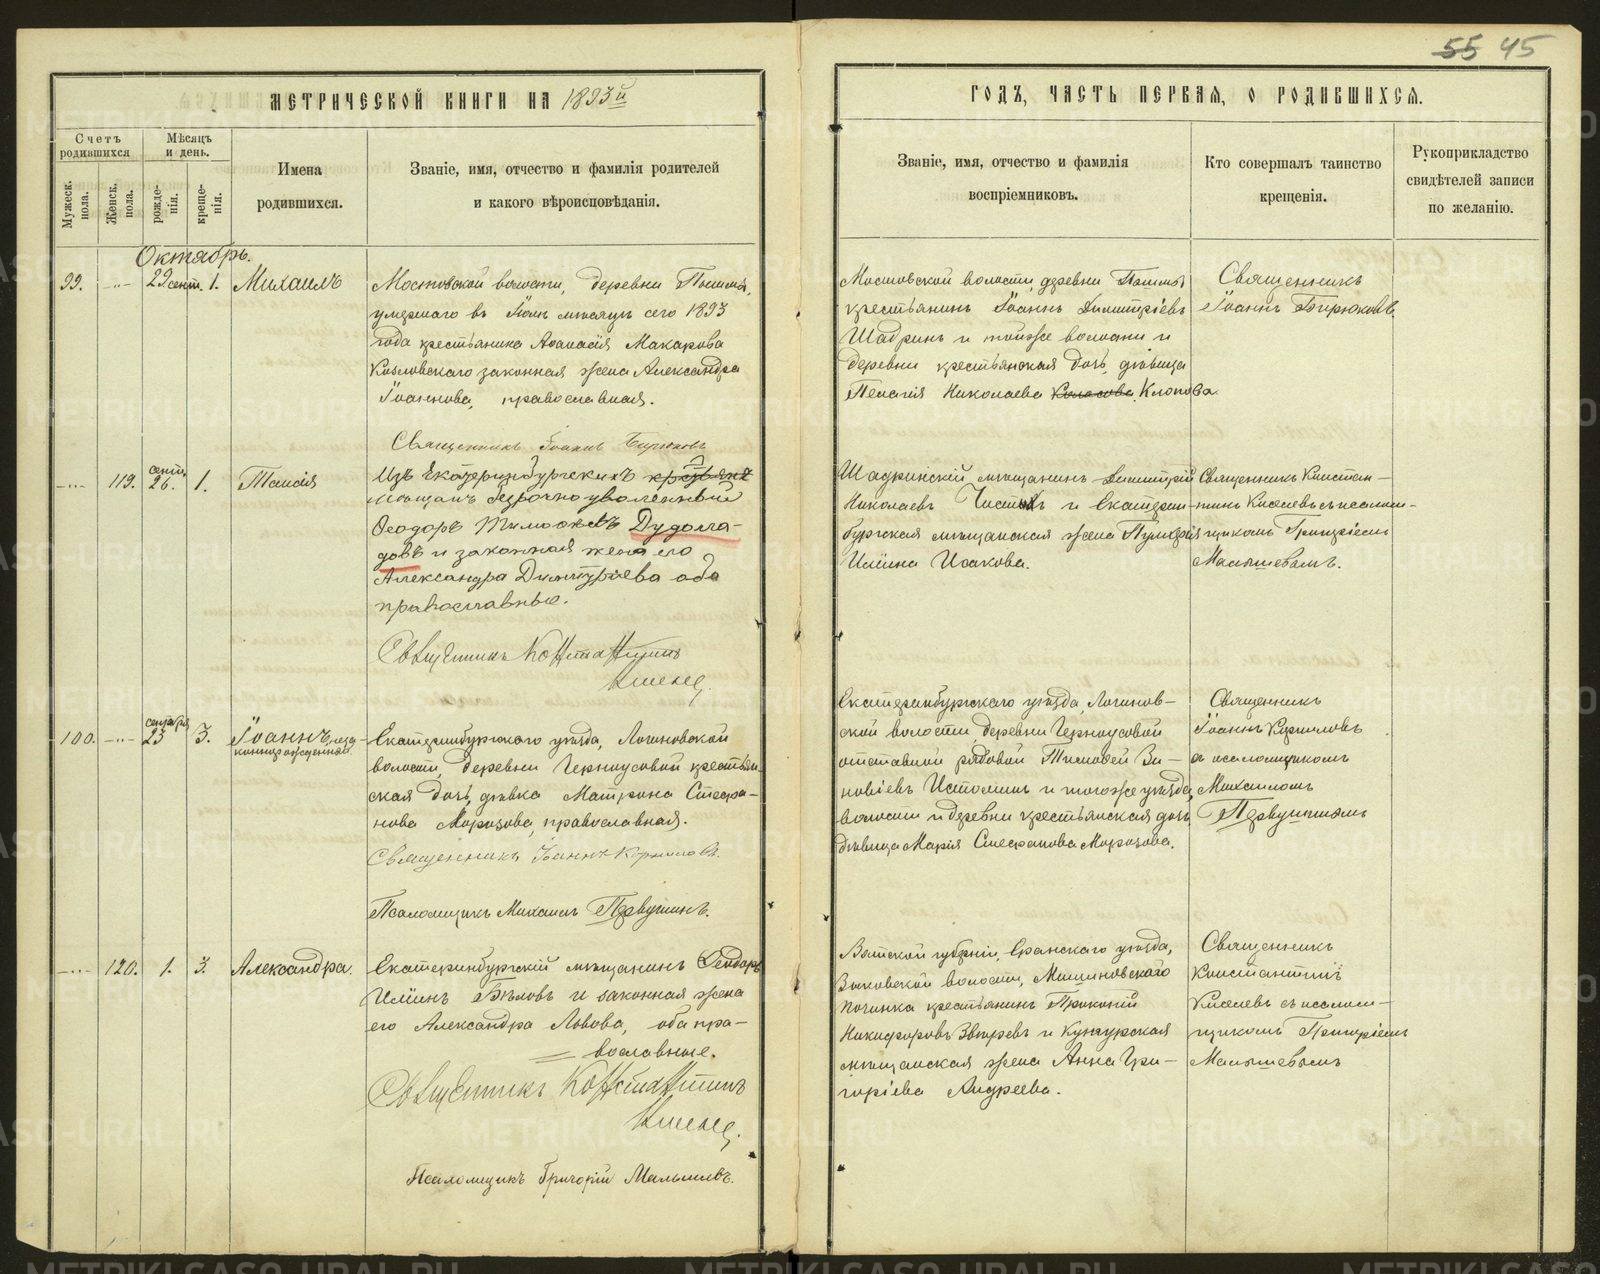 55 45
МЕТРИЧЕСКОЙ КНИГИ НА 1893й
ГОДЪ, ЧАСТЬ ПЕРВАЯ, О РОДИВШИХСЯ.
Счетъ родившихся
Мужеск. пола.
Женск. пола.
Мѣсяцъ и день.
рожде-нія.
креще-нія.
Имена
родившихся.
Званіе, имя, отчество и фамилія родителей
и какого вѣроисповѣданія.
Званіе, имя, отчество и фамилія
воспріемниковъ.
Кто совершалъ таинство
крещенія.
Рукоприкладство
свидѣтелей записи
по желанію.
Октябрь.
99. 29 сент. 1. Михаилъ
Мостовской волости, деревни
умершаго въ Іюлѣ мѣсяцѣ сего 1893
года крестьянина Аѳанасія Макарова
Козловскаго законная жена Александра
Іоаннова, православная.
Священникъ Іоаннъ Бирюковъ
Мостовской волости, деревни
крестьянинъ Іоаннъ Димитріевъ
Шадринъ и тойже волости и
деревни крестьянская дочь, дѣвица
Пелагія Николаева Клопова.
Священникъ
Іоаннъ Бирюковъ.
119. сент. 26. 1. Таисія
Изъ Екатеринбургскихъ
мѣщанъ безсрочно уволенный
Ѳеодоръ Тимоѳеевъ Дудолла-
довъ и законная жена его
Александра Димитріева оба
православные.
Священникъ Константинъ
Киселев
Шадринскій мѣщанинъ Димитрій
Николаевъ и Екатерин-
бургская мѣщанская жена
Ильина Исакова.
Священникъ Констан-
тинъ Киселевъ съ псалом-
щикомъ Григоріемъ
Малышевымъ.
100. сентября 23 3. Іоаннъ, неза-
коннорожденный.
Екатеринбургскаго уѣзда, Логиновской
волости, деревни Черноусовой крестьян-
ская дочь, дѣвка Матрона Стефа-
нова Морозова, православная.
Священникъ Іоаннъ Корниловъ.
Псаломщикъ Михаилъ Первушинъ.
Екатеринбургскаго уѣзда, Логинов-
ской волости деревни Черноусовой
отставной рядовой Тимоѳей Зи-
новіевъ Истоминъ и тогоже уѣзда,
волости и деревни крестьянская дочь
дѣвица Марія Стефанова Морозова.
Священникъ
Іоаннъ Корниловъ
съ псаломщикомъ
Михаиломъ
Первушинымъ
120. 1. 3. Александра.
Екатеринбургскій мѣщанинъ Ѳеодоръ
Ильинъ Бѣловъ и законная жена
его Александра Львова, оба пра-
вославные.
Священникъ Константинъ
Киселев
Псаломщикъ Григорій Малышевъ.
Вятской губерніи, Яранскаго уѣзда,
волости,
починка крестьянинъ Прокопій
Никифоровъ Звѣревъ и Кунгурская
мѣщанская жена Анна Гри-
горіева Андреева.
Священникъ
Константинъ
Киселевъ съ псалом-
щикомъ Григоріемъ
Малышевымъ
METRIKI.GASO-URAL.RU